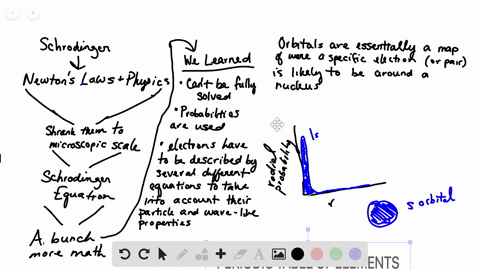 Schrodinger
Newton's Laws + Physics
Shrink them to
microscopic scale
Schrodinger
Equation
A bunch
more math
We Learned
• Can't be fully
solved
• Probabilities
are used
• electrons have
to be described by
several different
equations to take
into account their
particle and wave-like
properties
Orbitals are essentially a map
of were a specific electron (or pair)
is likely to be around a
nucleus
radial
probability
1s
r
s orbital
PERIODIC TABLE OF ELEMENTS